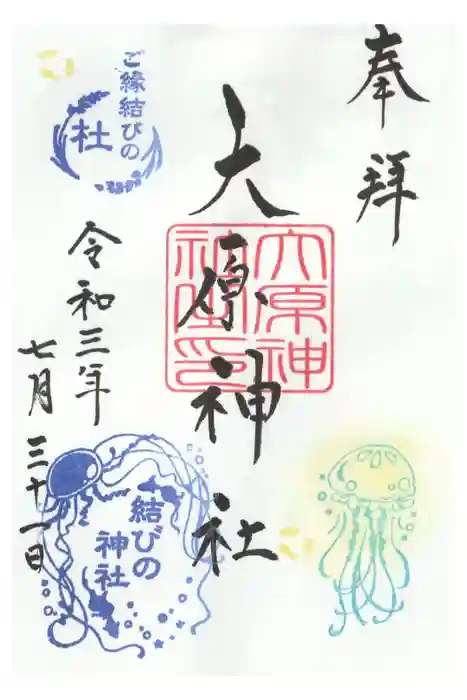 奉拝
大原神社
大原神
社璽印
ご縁結びの
社
令和三年
七月三十一日
結びの
神社